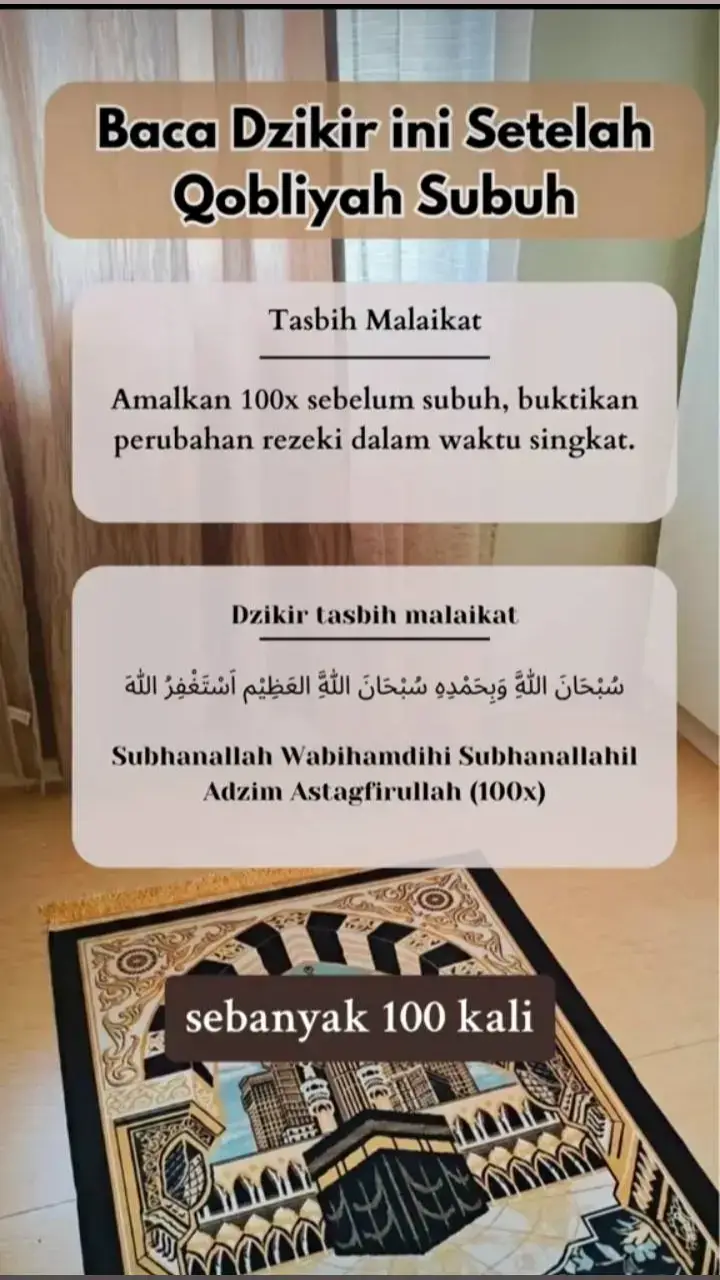 Baca Dzikir ini Setelah
Qobliyah Subuh
Tasbih Malaikat
Amalkan 100x sebelum subuh, buktikan
perubahan rezeki dalam waktu singkat.
Dzikir tasbih malaikat
سُبْحَانَ اللهِ وَبِحَمْدِهِ سُبْحَانَ اللهِ العَظِيْمِ اَسْتَغْفِرُ اللهَ
Subhanallah Wabihamdihi Subhanallahil
Adzim Astagfirullah (100x)
sebanyak 100 kali